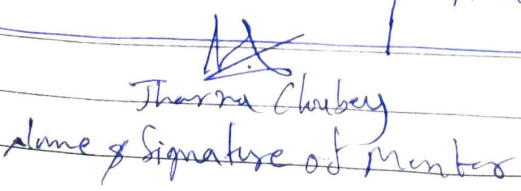 Jharna Choubey
Name & Signature of Mentor